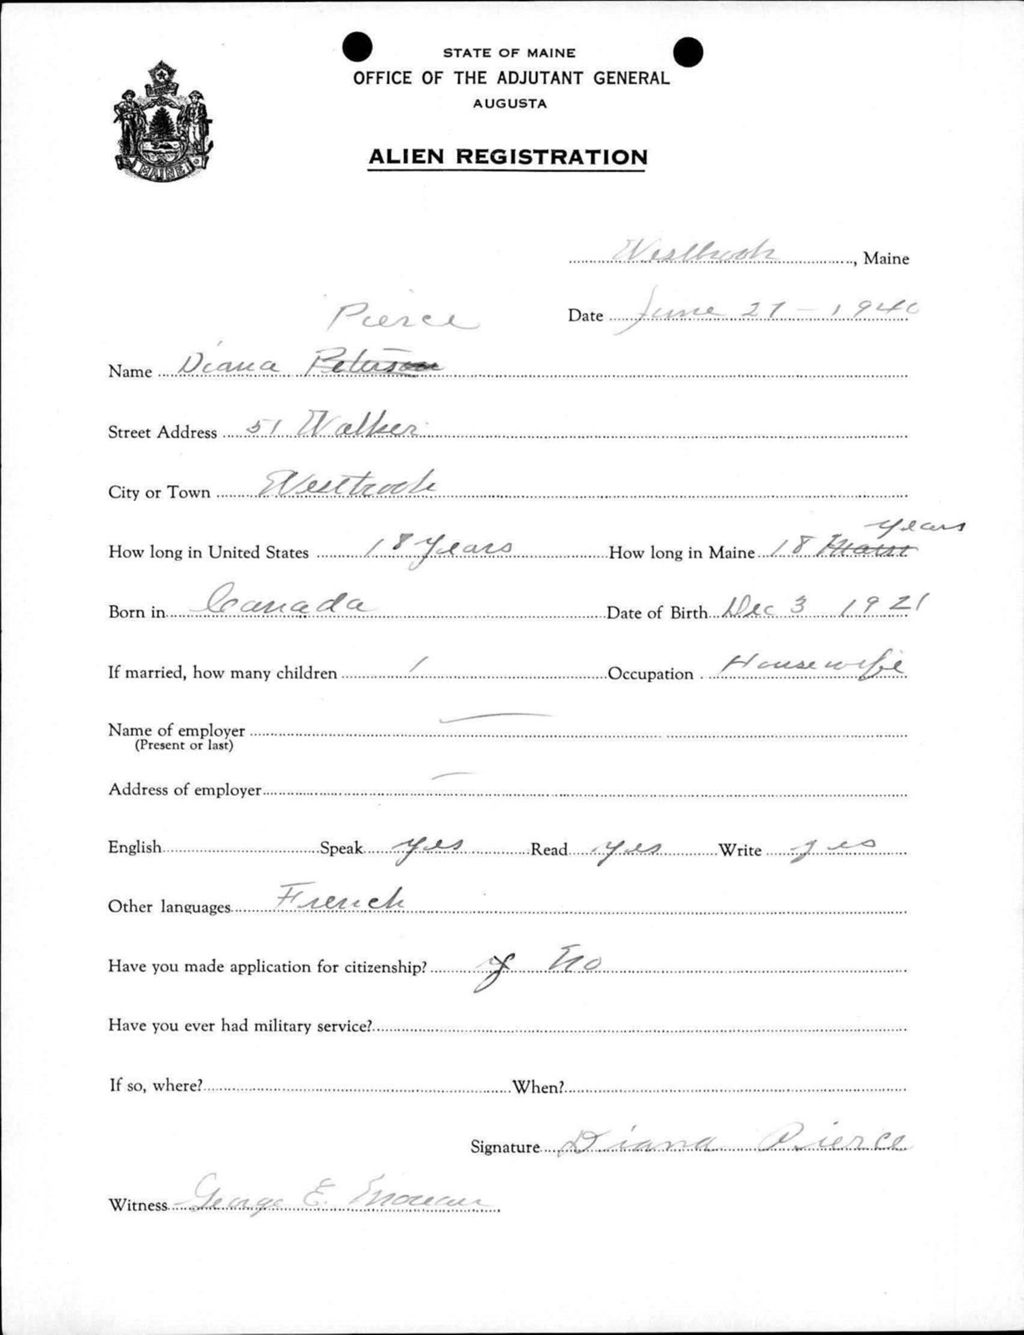 STATE OF MAINE
OFFICE OF THE ADJUTANT GENERAL
AUGUSTA
ALIEN REGISTRATION
MAINE
Westbrook, Maine
Date June 27 - 1940
Pierce
Name Diana Peterson
Street Address 51 Walker
City or Town Westbrook
years
How long in United States 18 years How long in Maine 18 Maine
Born in Canada Date of Birth Dec 3 1921
If married, how many children 1 Occupation Housewife
Name of employer —
(Present or last)
Address of employer —
English Speak yes Read yes Write yes
Other languages French
Have you made application for citizenship? y No
Have you ever had military service?
If so, where? When?
Signature Diana Pierce
Witness George E.